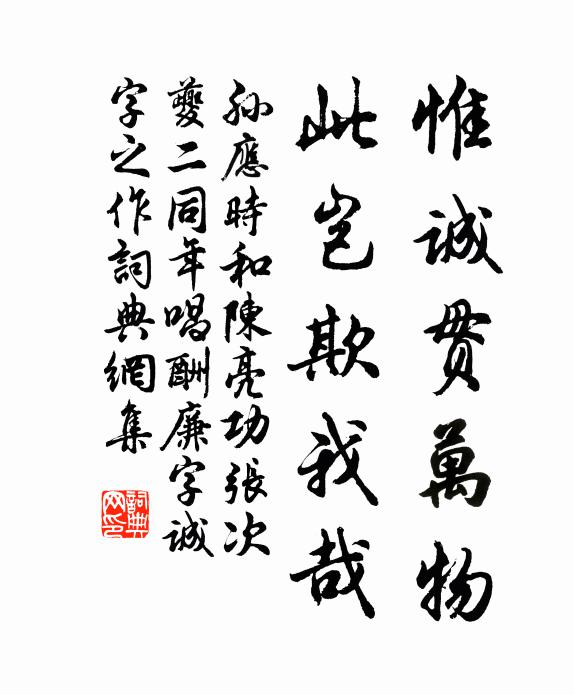 惟誠貫萬物
此豈欺我哉
孫應時和陳亮功張次
夔二同年唱酬廉字誠
字之作詞典網集
詞典
网印